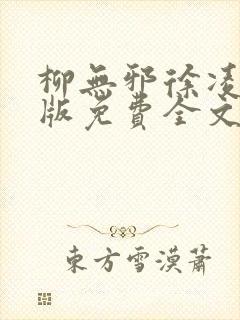 柳無邪徐凌
版免費全文
東方雪漠蕭